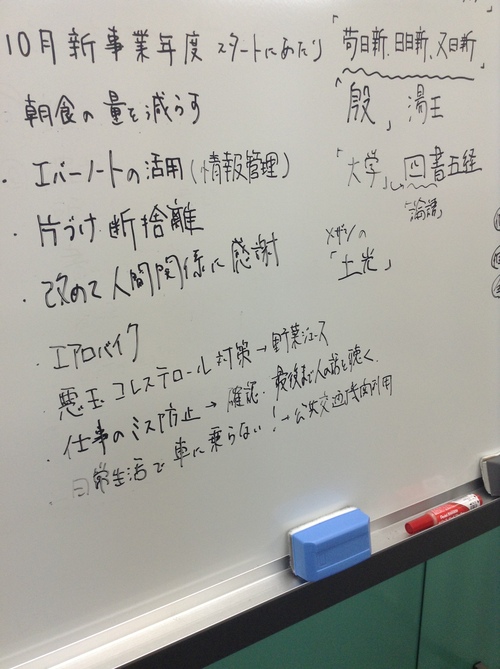 10月新事業年度 スタートにあたり
朝食の量を減らす
・エバーノートの活用(情報管理)
・片づけ 断捨離
・改めて人間関係に感謝
・エアロバイク
・悪玉コレステロール対策→野菜ジュース
・仕事のミス防止→確認・最後まで人の話を聴く
・日常生活で車に乗らない!→公共交通機関利用
「苟日新、日日新、又日新」
「殷」湯王
「大学」四書五経
「論語」
メザシの
「土光」